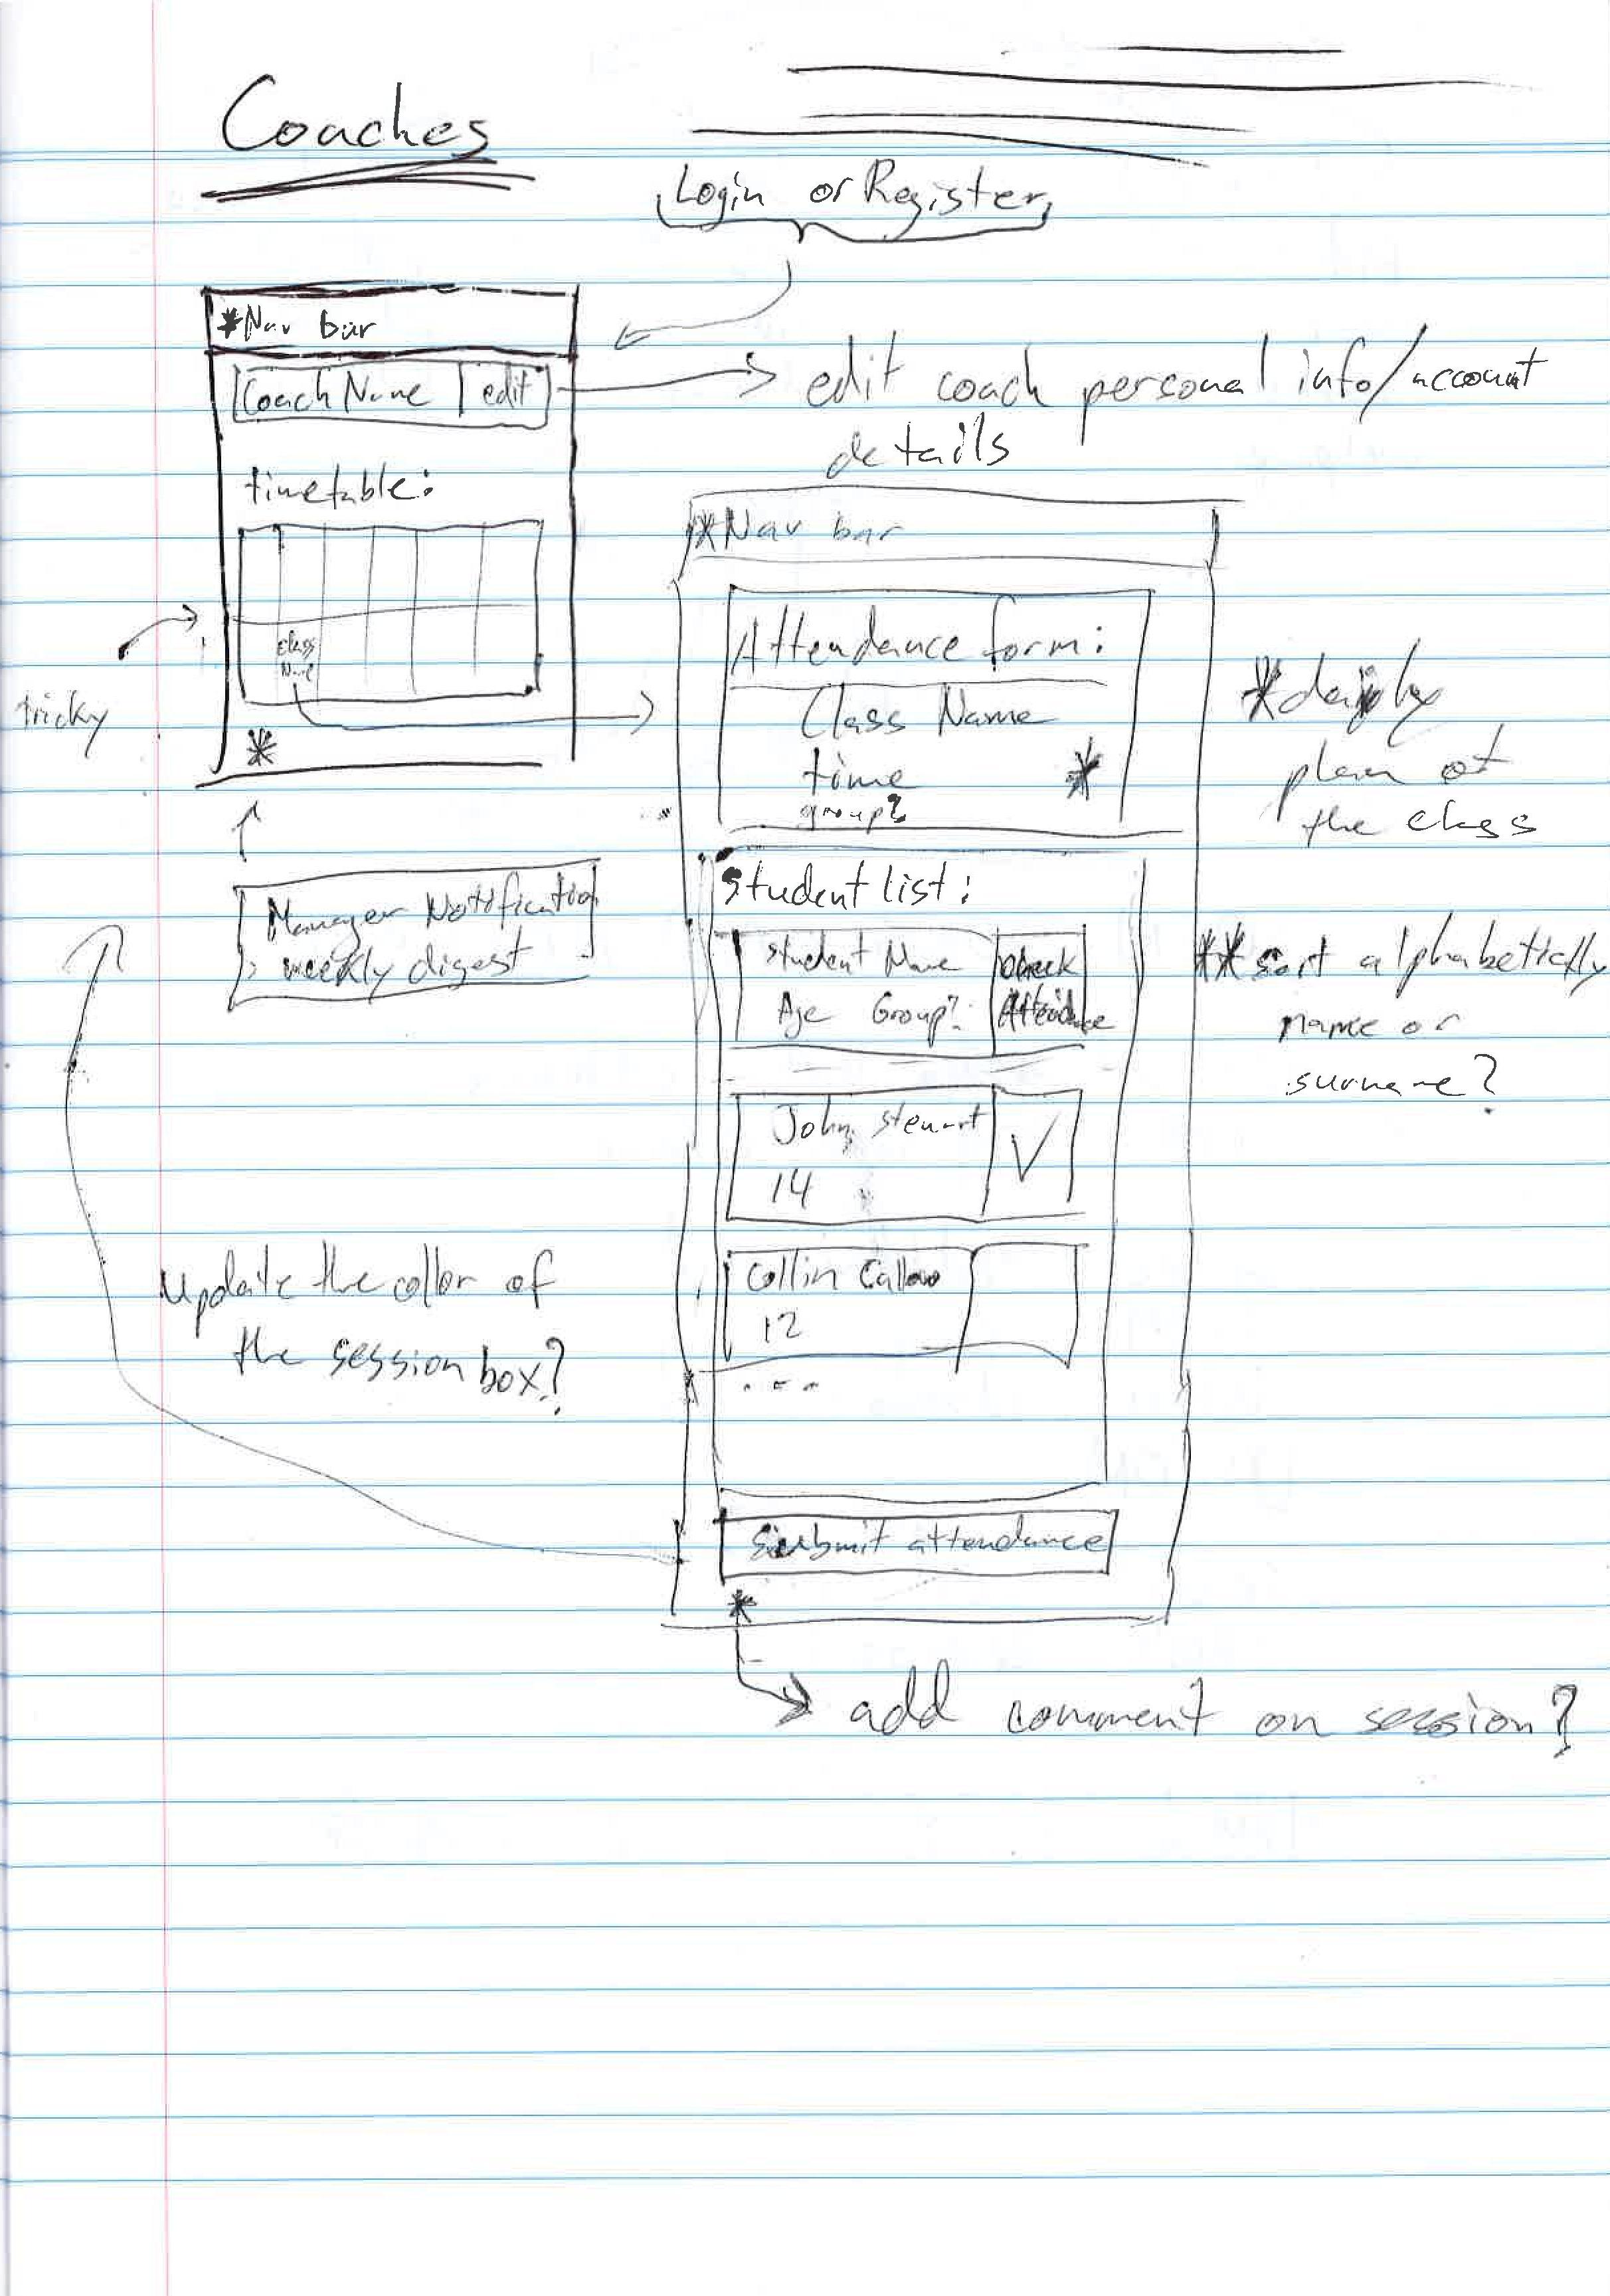 Coaches
Login or Register
*Nav bar
Coach Name | edit
edit coach personal info/account
details
timetable:
class
Name
tricky
*
Manager Notification
weekly digest
*Nav bar
Attendance form:
Class Name
time *
group?
plan of
the class
Student list:
Student Name
Age Group?
check
Attendance
** sort alphabetically
name or
surname?
John Stewart
14
Collin
12
...
Submit attendance
*
add comment on session?
update the collor of
the session box?